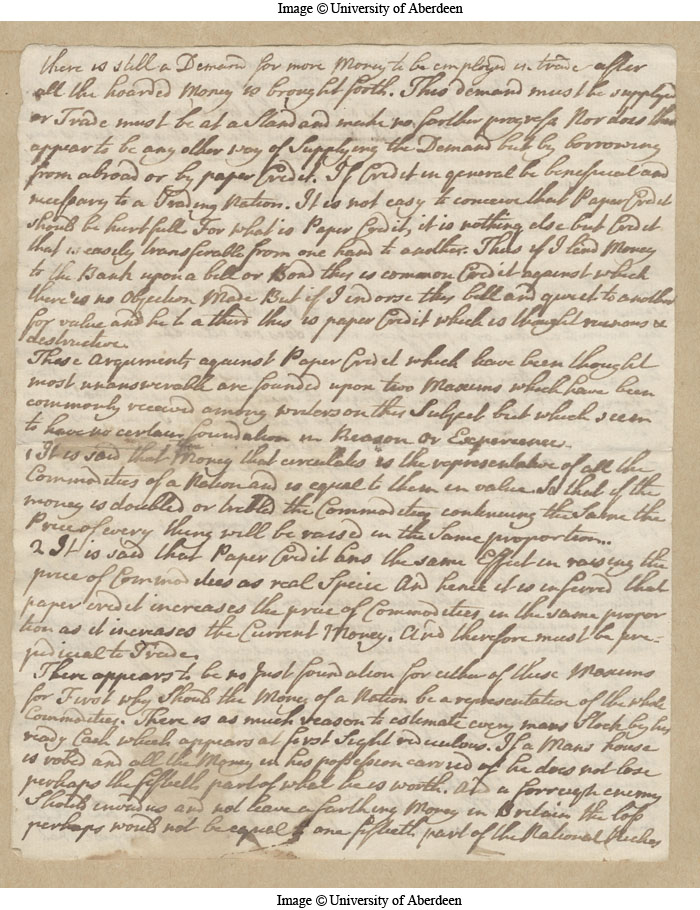 Image © University of Aberdeen
there is still a Demand for more Money to be employed in trade after
all the hoarded Money is brought forth. This demand must be supplyed
or Trade must be at a Stand and make no farther progress Nor does there
appear to be any other way of Supplying the Demand but by borrowing
from abroad or by paper Credit. If Credit in general be beneficial and
necessary to a Trading Nation. It is not easy to conceive that Paper Credit
should be hurtfull For what is Paper Credit, it is nothing else but Credit
that is easily transferable from one hand to another. Thus if I lend Money
to the Bank upon a bill or Bond this is common Credit against which
there is no Objection Made But if I indorse this bill and give it to another
for value and he to a third this is paper Credit which is thought ruinous &
destructive.
These Arguments against Paper Credit which have been thought
most unanswerable are founded upon two Maxims which have been
commonly received among writers on this Subject but which seem
to have no certain foundation in Reason or Experience.
1 It is said that the Money that circulates is the representative of all the
Commodities of a Nation and is equal to them in value So that if the
money is doubled or trebled the Commodities continuing the Same the
Price of every thing will be raised in the Same proportion..
2 It is said that Paper Credit has the same Effect in raising the
price of Commodities as real Specie And hence it is inferred that
paper credit increases the price of Commodities in the same propor
tion as it increases the Current Money. And therefore must be pre-
judicial to Trade.
There appears to be no Just foundation for either of these Maxims
for First why should the Money of a Nation be a representation of the whole
Commodities. There is as much reason to estimate every mans Stock by his
ready Cash which appears at first Sight rediculous. If a Mans house
is robed and all the Money in his possession carried of he does not lose
perhaps the fiftieth part of what he is worth. And a forreign enemy
Should invade us and not leave a farthing Money in Britain the loss
perhaps would not be equal to one fiftieth part of the National Riches
Image © University of Aberdeen